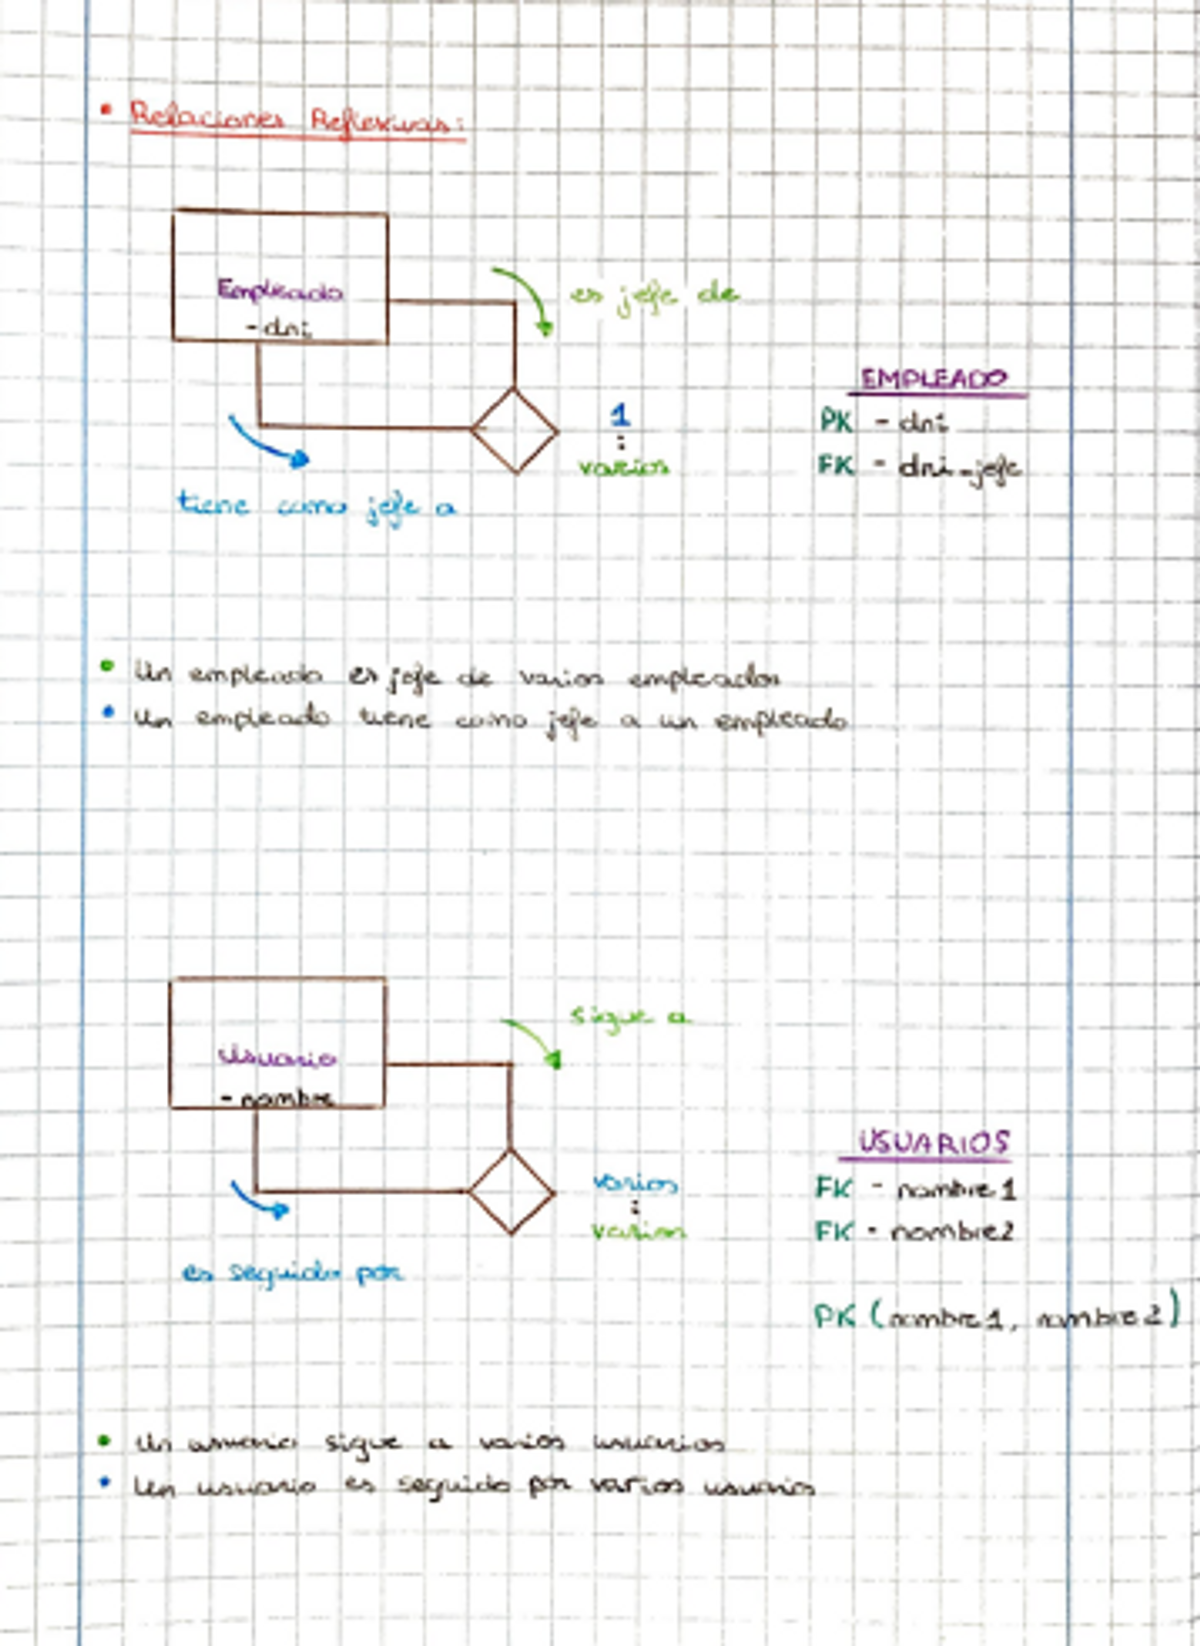 • Relaciones Reflexivas:
Empleado
- dni
es jefe de
1
:
varios
tiene como jefe a
EMPLEADO
PK - dni
FK - dni_jefe
• Un empleado es jefe de varios empleados
• Un empleado tiene como jefe a un empleado
Usuario
- nombre
sigue a
varios
:
varios
es seguido por
USUARIOS
FK - nombre1
FK - nombre2
PK (nombre1, nombre2)
• Un usuario sigue a varios usuarios
• Un usuario es seguido por varios usuarios